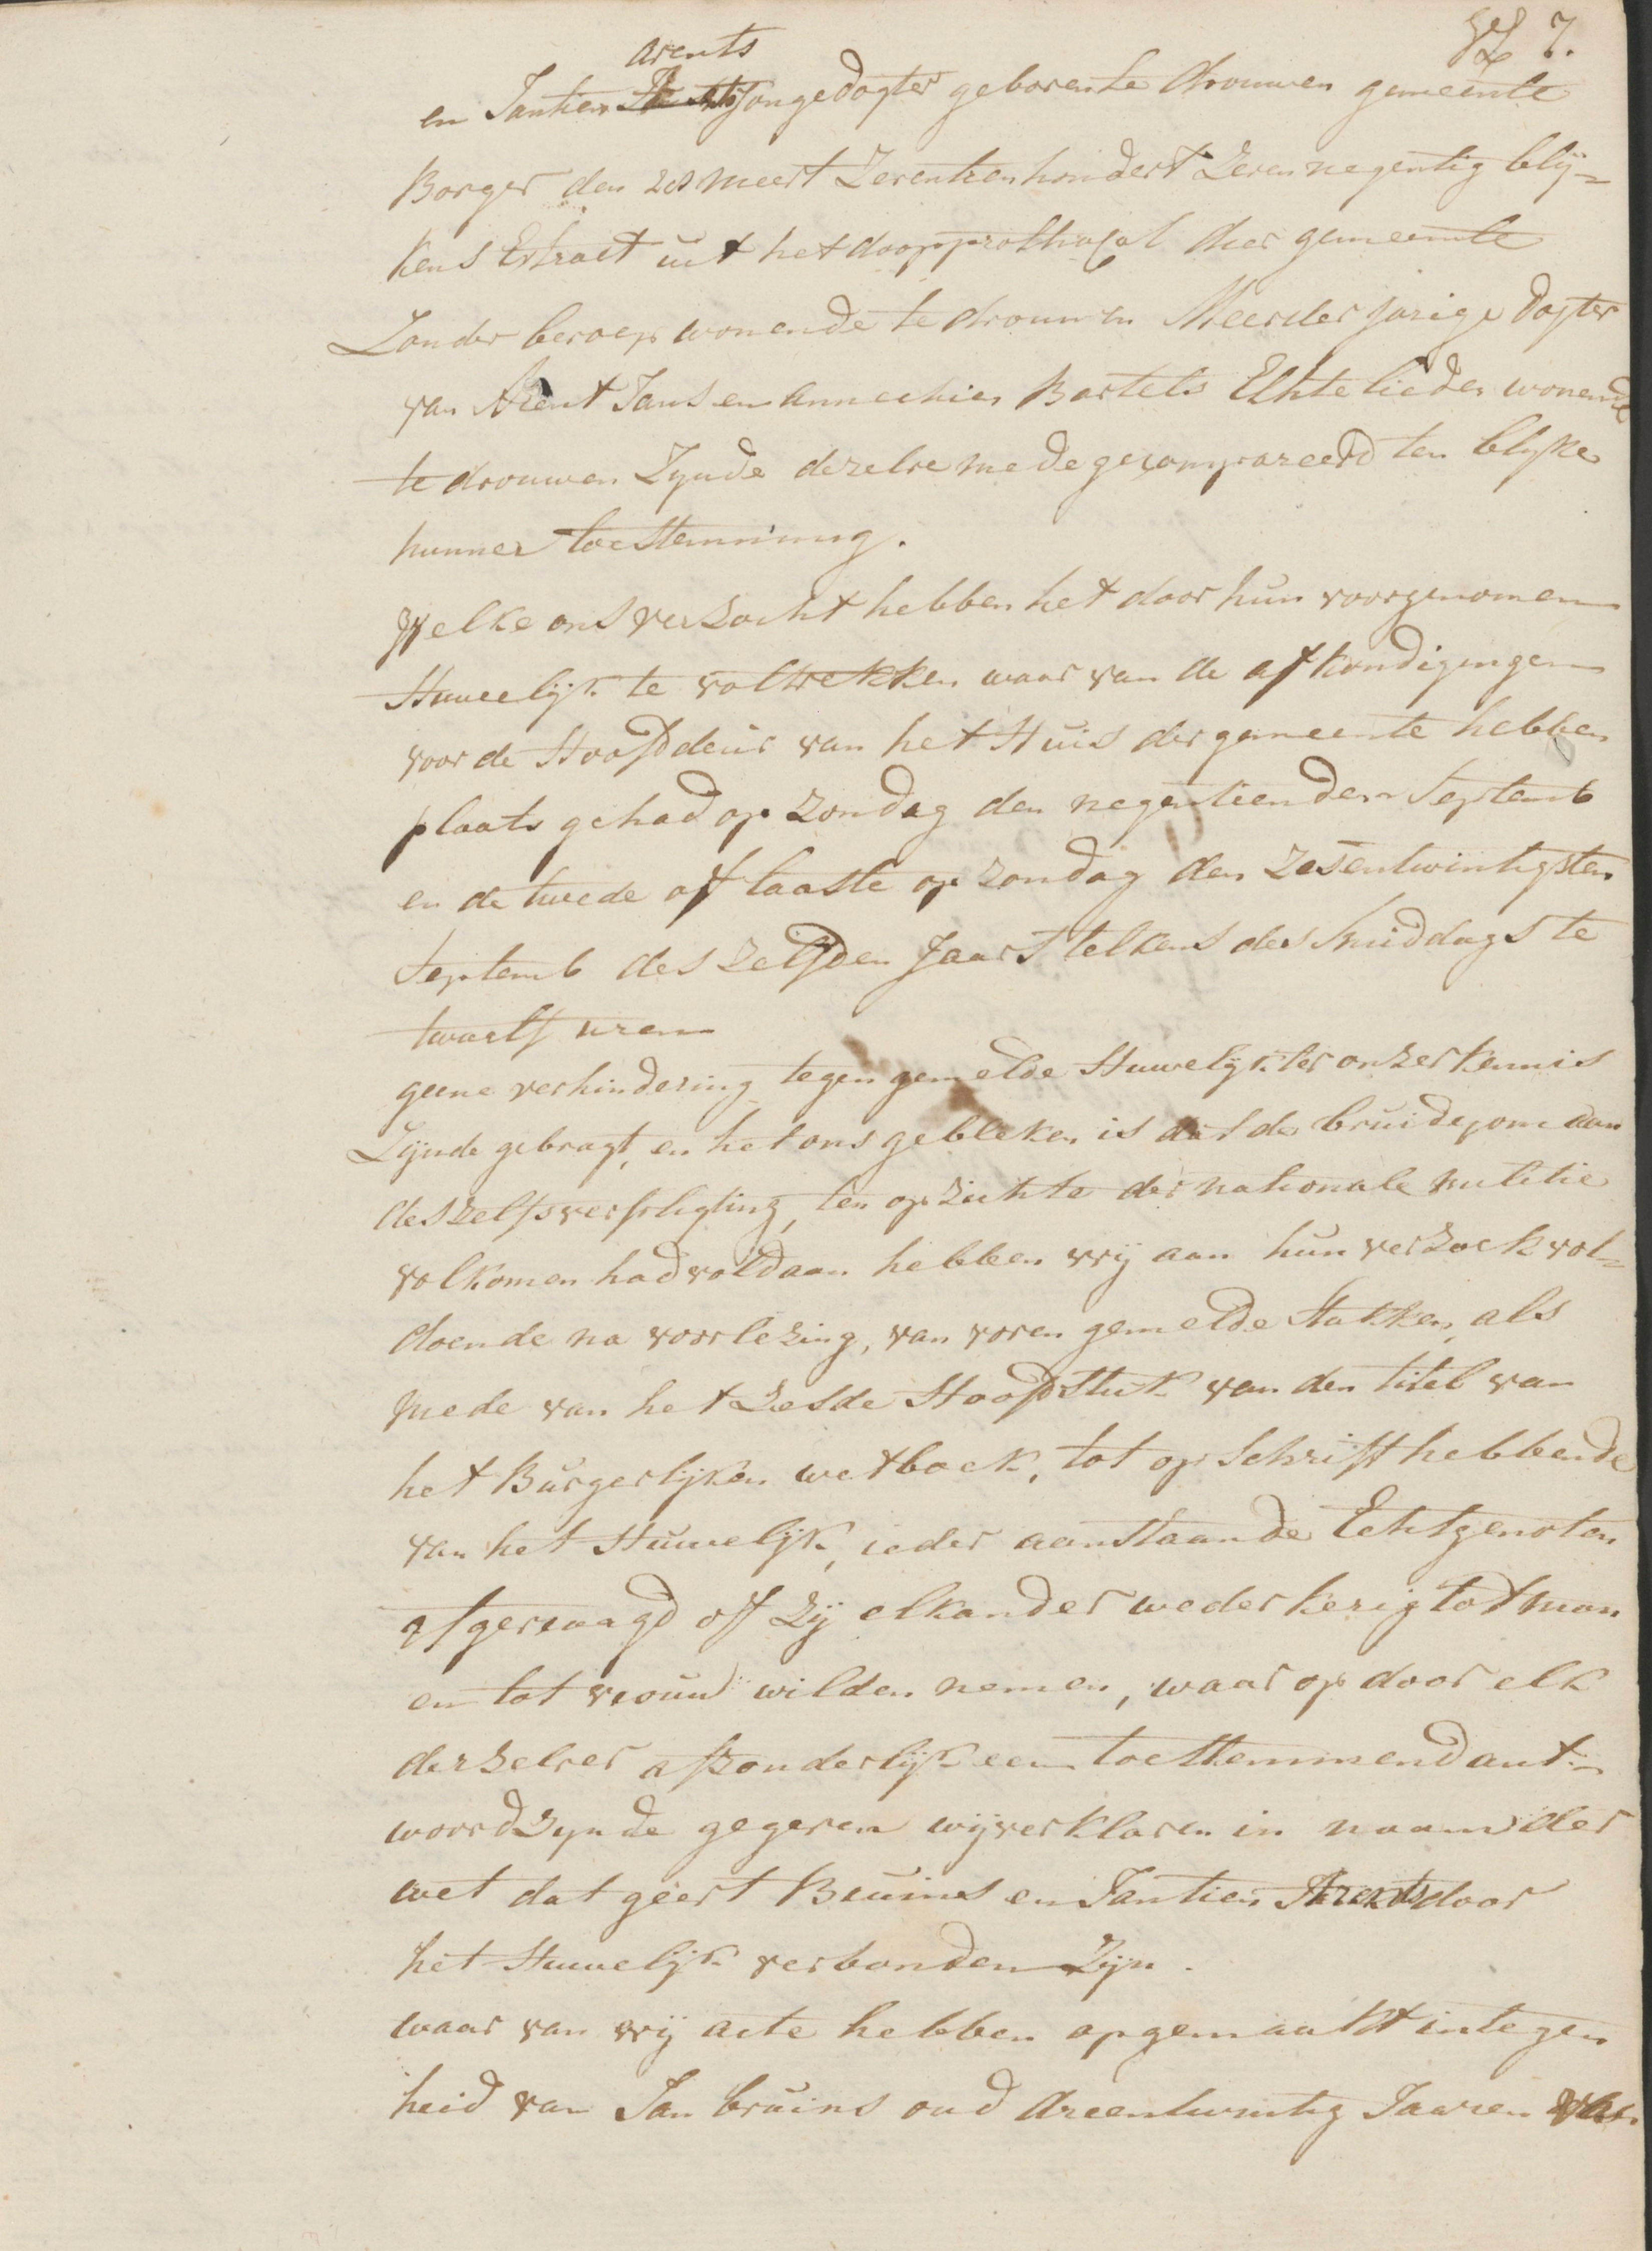 7.
arents
en Jantien jongedogter geboren te drouwen gemeente
Borger den 28 meert Zeventien hondert Zeven negentig blij=
kens Extract uit het doopprothocol dier gemeente
Zonder beroep wonende te drouwen Meerderjarige dogter
van Arent Jans en annechien Bartels Ehte lieden wonende
te drouwen Zynde dezelve mede gecompareerd ten blyke
hunner toestemming.
Welke ons verzocht hebben het door hun voorgenomen
Huwelijk te voltrekken waar van de afkondigingen
voor de Hoofddeur van het Huis der gemeente hebben
plaats gehad op zondag den negentienden Septemb
en de twede of laaste op zondag den zesentwintigsten
Septemb des zelfden Jaars telkens des middags te
twaelf uren
geene verhindering tegen gemelde Huwelijk ter onzer kennis
Zijnde gebragt, en het ons gebleken is dat de bruidegom aan
deszelfs verpligting, ten opzichte der nationale militie
volkomen had voldaan hebben wij aan hun verzoek vol=
doende na voorlezing, van voren gemelde stukken, als
mede van het Zesde Hoofdstuk van den titel van
het Burgerlijken wetboek, tot opschrift hebbende
van het Huwelijk, ieder aanstaande Echtgenoten
afgevraagd of zij elkander wederkerig tot man
en tot vrouw wilden nemen, waar op door elk
derzelver afzonderlijk een toestemmend ant=
woord zynde gegeven wij verklaren in naam der
wet dat geert Bruins en Jantien Arents door
het Huwelijk verbonden Zijn.
waar van wij acte hebben opgemaakt in tegen
heid van Jan bruins oud dreentwintig Jaaren van